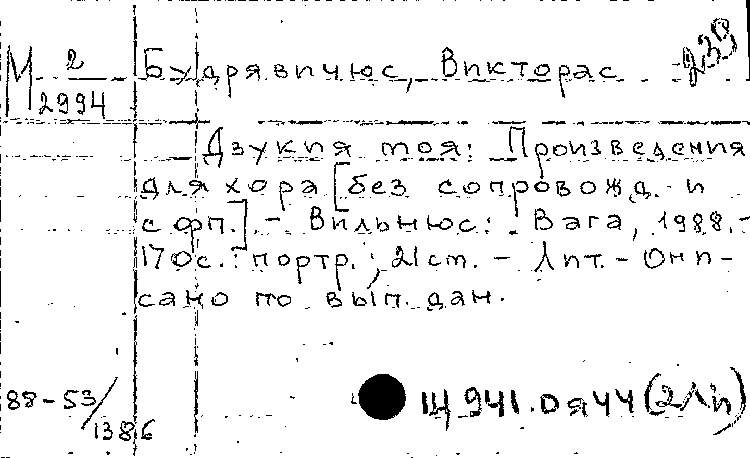 М 2/2994
Будрявичюс, Викторас 239
Дзукия моя: Произведения
для хора [без сопровожд. и
с фп.] - Вильнюс: Вага, 1988.-
170с.: портр.; 21см. - Лит. - Опи-
сано по вып. дан.
88-53/1386
Щ941.0я44(2Ли)